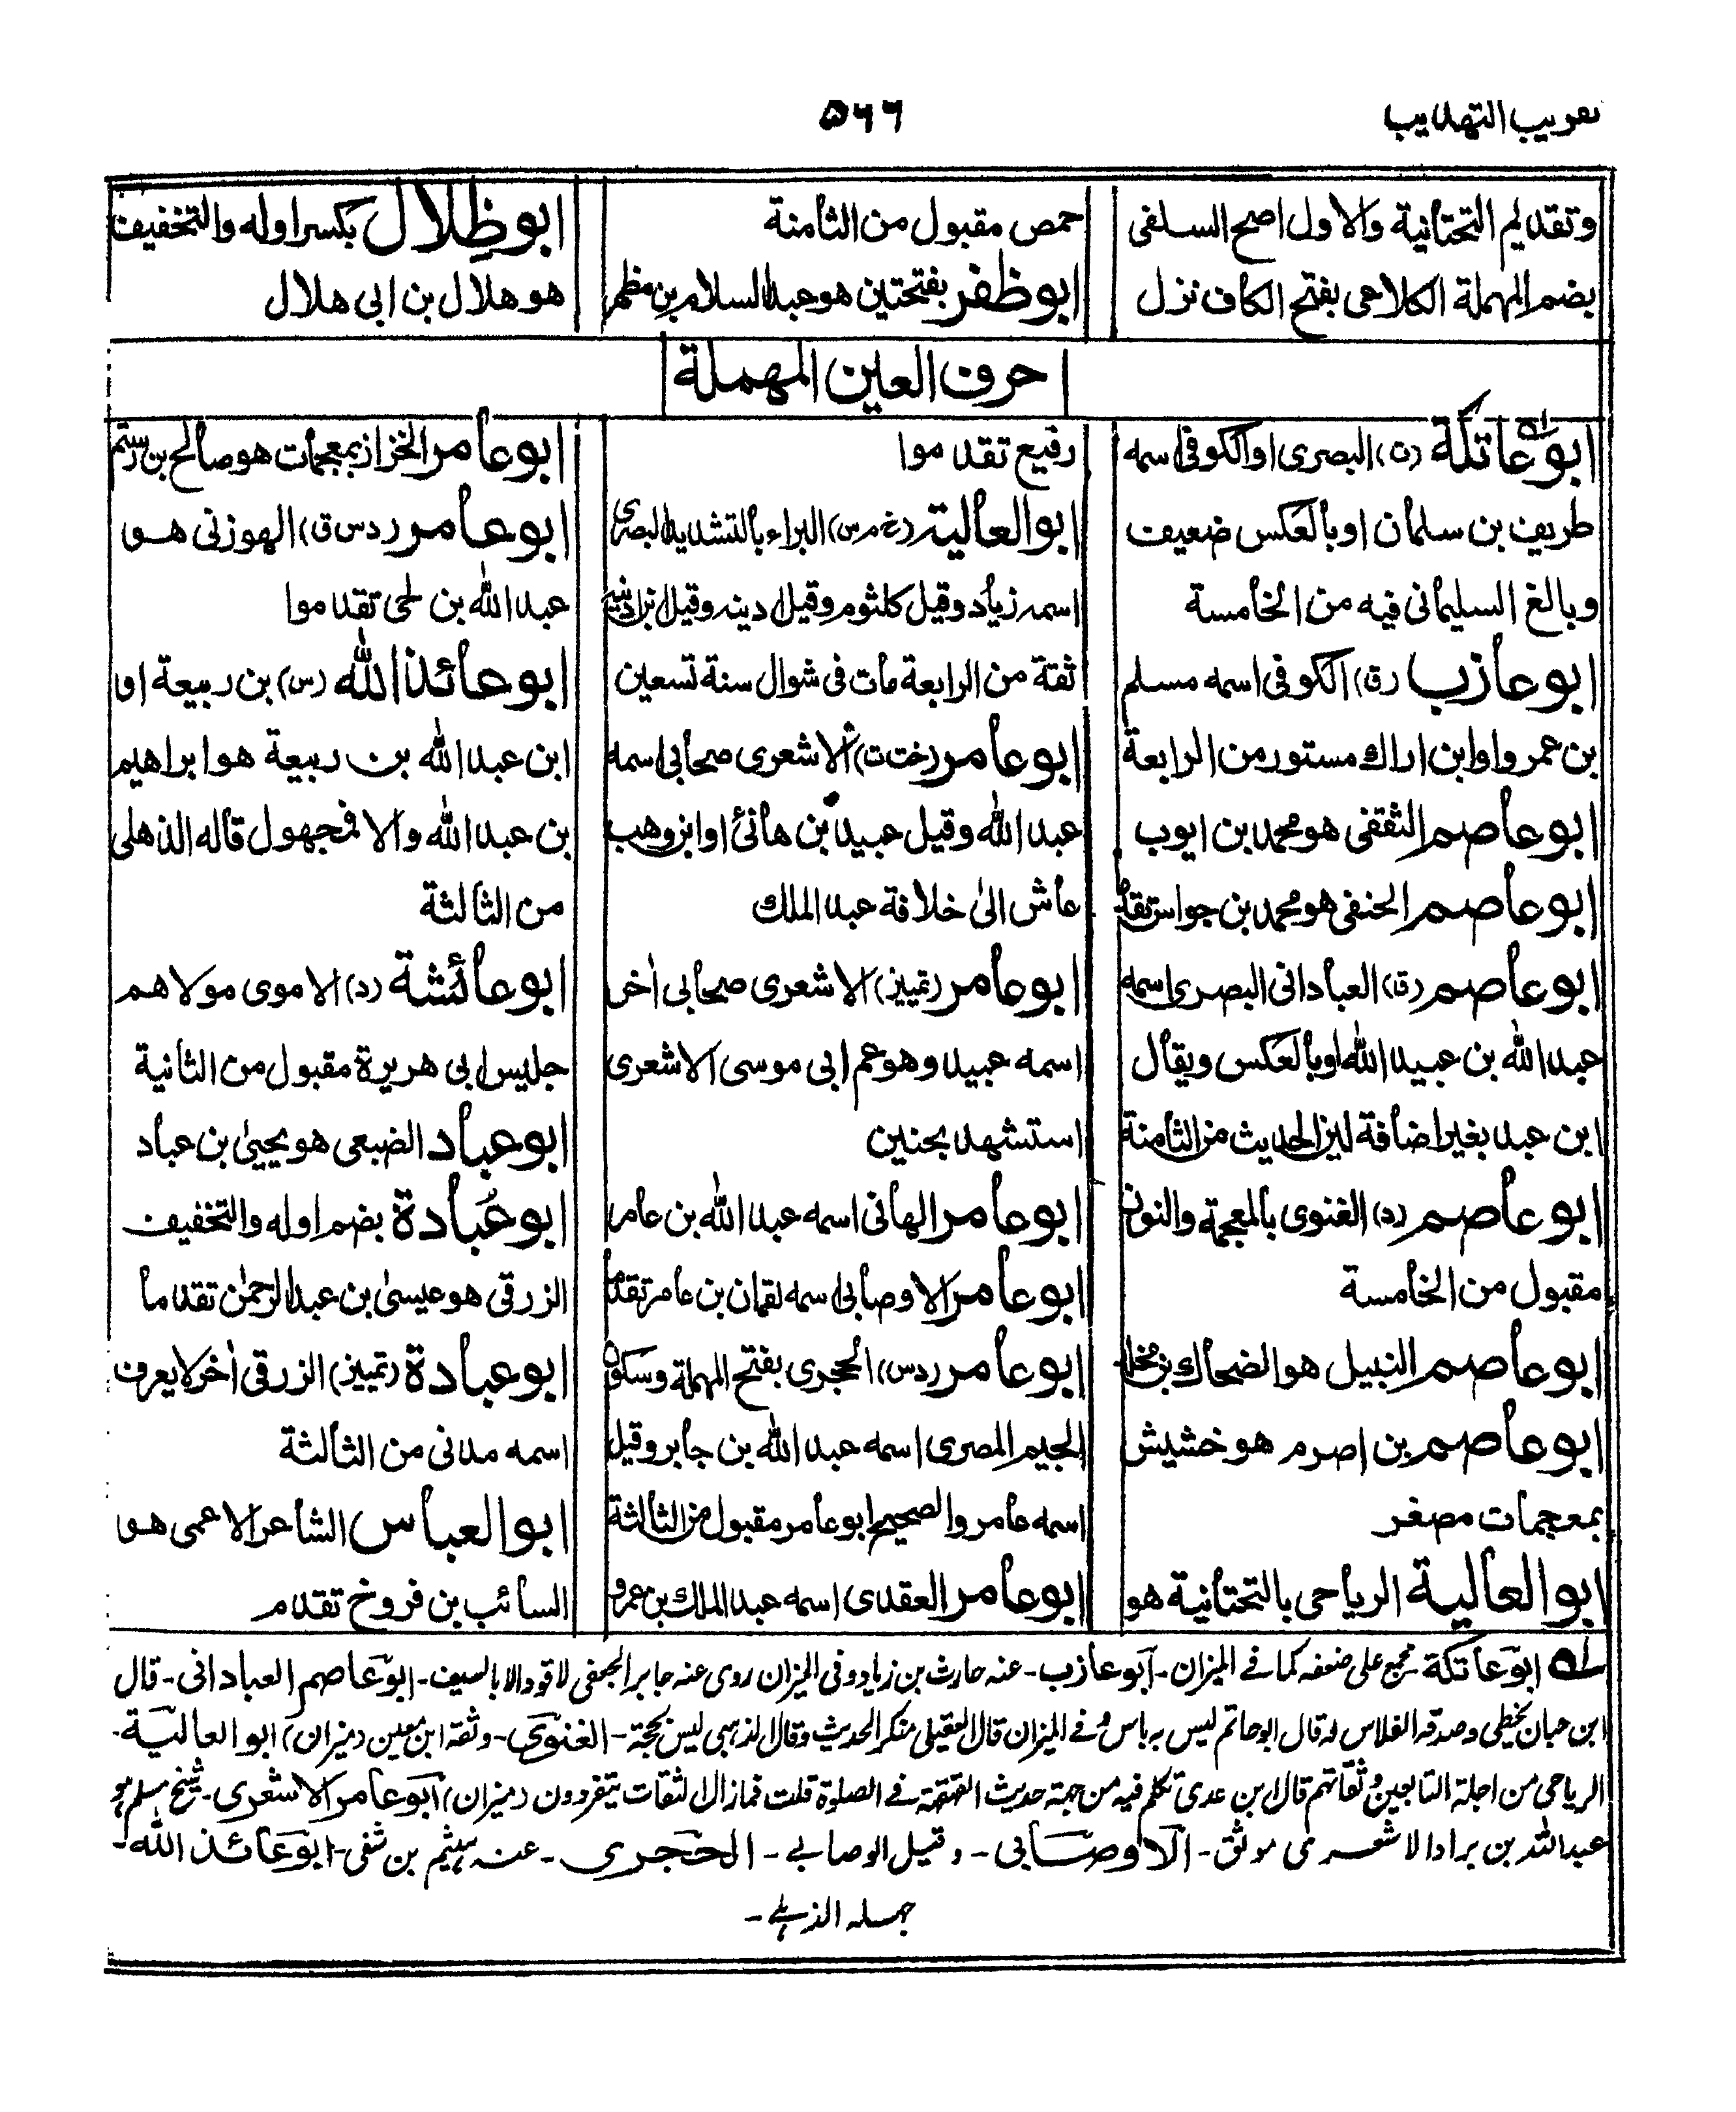 تقريب التهذيب
۵۶۶
وتقديم التحتانية والاول اصح السلفى
بضم المهملة الكلاعى بفتح الكاف نزل
حمص مقبول من الثامنة
ابو ظفر بفتحتين هو عبد السلام بن مطهر
ابو ظِلال بكسر اوله والتخفيف
هو هلال بن ابى هلال
حرف العين المهملة
ابو عاتكة (ت) البصرى او الكوفى اسمه
طريف بن سلمان او بالعكس ضعيف
وبالغ السليمانى فيه من الخامسة
ابو عازب (ق) الكوفى اسمه مسلم
بن عمرو او ابن اراك مستور من الرابعة
ابو عاصم الثقفى هو محمد بن ايوب
ابو عاصم الحنفى هو محمد بن جواس تقدما
ابو عاصم (ق) العبادانى البصرى اسمه
عبد الله بن عبيد الله او بالعكس ويقال
ابن عبد بغير اضافة لين الحديث من الثامنة
ابو عاصم (د) الغنوى بالمعجمة والنون
مقبول من الخامسة
ابو عاصم النبيل هو الضحاك بن مخلد
ابو عاصم بن اصرم هو خشيش
بمعجمات مصغر
ابو العالية الرياحى بالتحتانية هو
رفيع تقدموا
ابو العالية (خ م س) البراء بالتشديد البصرى
اسمه زياد وقيل كلثوم وقيل اذينه وقيل ابن اذينه
ثقة من الرابعة مات فى شوال سنة تسعين
ابو عامر (خت ت) الاشعرى صحابى اسمه
عبد الله وقيل عبيد بن هانئ او ابن وهب
عاش الى خلافة عبد الملك
ابو عامر (تمييز) الاشعرى صحابى اٰخر
اسمه عبيد وهو عم ابى موسى الاشعرى
استشهد بحنين
ابو عامر الهانى اسمه عبد الله بن عامر
ابو عامر الاوصابى اسمه لقمان بن عامر تقدما
ابو عامر (د س) الحجرى بفتح المهملة وسكون
الجيم المصرى اسمه عبد الله بن جابر وقيل
اسمه عامر والصحيح ابو عامر مقبول من الثالثة
ابو عامر العقدى اسمه عبد الملك بن عمرو
ابو عامر الخزاز بمعجمات هو صالح بن رستم
ابو عامر (د س ق) الهوزنى هو
عبد الله بن لحى تقدموا
ابو عائذ الله (س) بن ربيعة او
ابن عبد الله بن ربيعة هو ابراهيم
بن عبد الله والا فمجهول قاله الذهلى
من الثالثة
ابو عائشة (د) الاموى مولاهم
جليس ابى هريرة مقبول من الثانية
ابو عباد الضبعى هو يحيىٰ بن عباد
ابو عُبادة بضم اوله والتخفيف
الزرقى هو عيسىٰ بن عبد الرحمٰن تقدما
ابو عبادة (تمييز) الزرقى اٰخر لا يعرف
اسمه مدنى من الثالثة
ابو العباس الشاعر الاعمى هو
السائب بن فروخ تقدم
له ابو عاتكة مجمع على ضعفه كما فى الميزان ـ ابو عازب ـ عنه حارث بن زياد وفى الميزان روى عنه جابر الجعفى لا قود الا بالسيف ـ ابو عاصم العبادانى ـ قال
ابن حبان يخطى وصدقه الفلاس له قال ابو حاتم ليس به باس وفى الميزان قال العقيلى منكر الحديث وقال الذهبى ليس بحجة ـ الغنوى ـ وثقة ابن معين (ميزان) ابو العالية ـ
الرياحى من اجلة التابعين وثقاتهم قال ابن عدى تكلم فيه من جهة حديث القهقهة فى الصلوة قلت فما زال الثقات يتفردون (ميزان) ابو عامر الاشعرى ـ شيخ مسلم هو
عبد الله بن براد الاشعرى موثق ـ الاوصابى ـ وقيل الوصابى ـ الحجرى ـ عنه هيثم بن شفى ـ ابو عائذ الله ـ
جهله الذهلى ـ